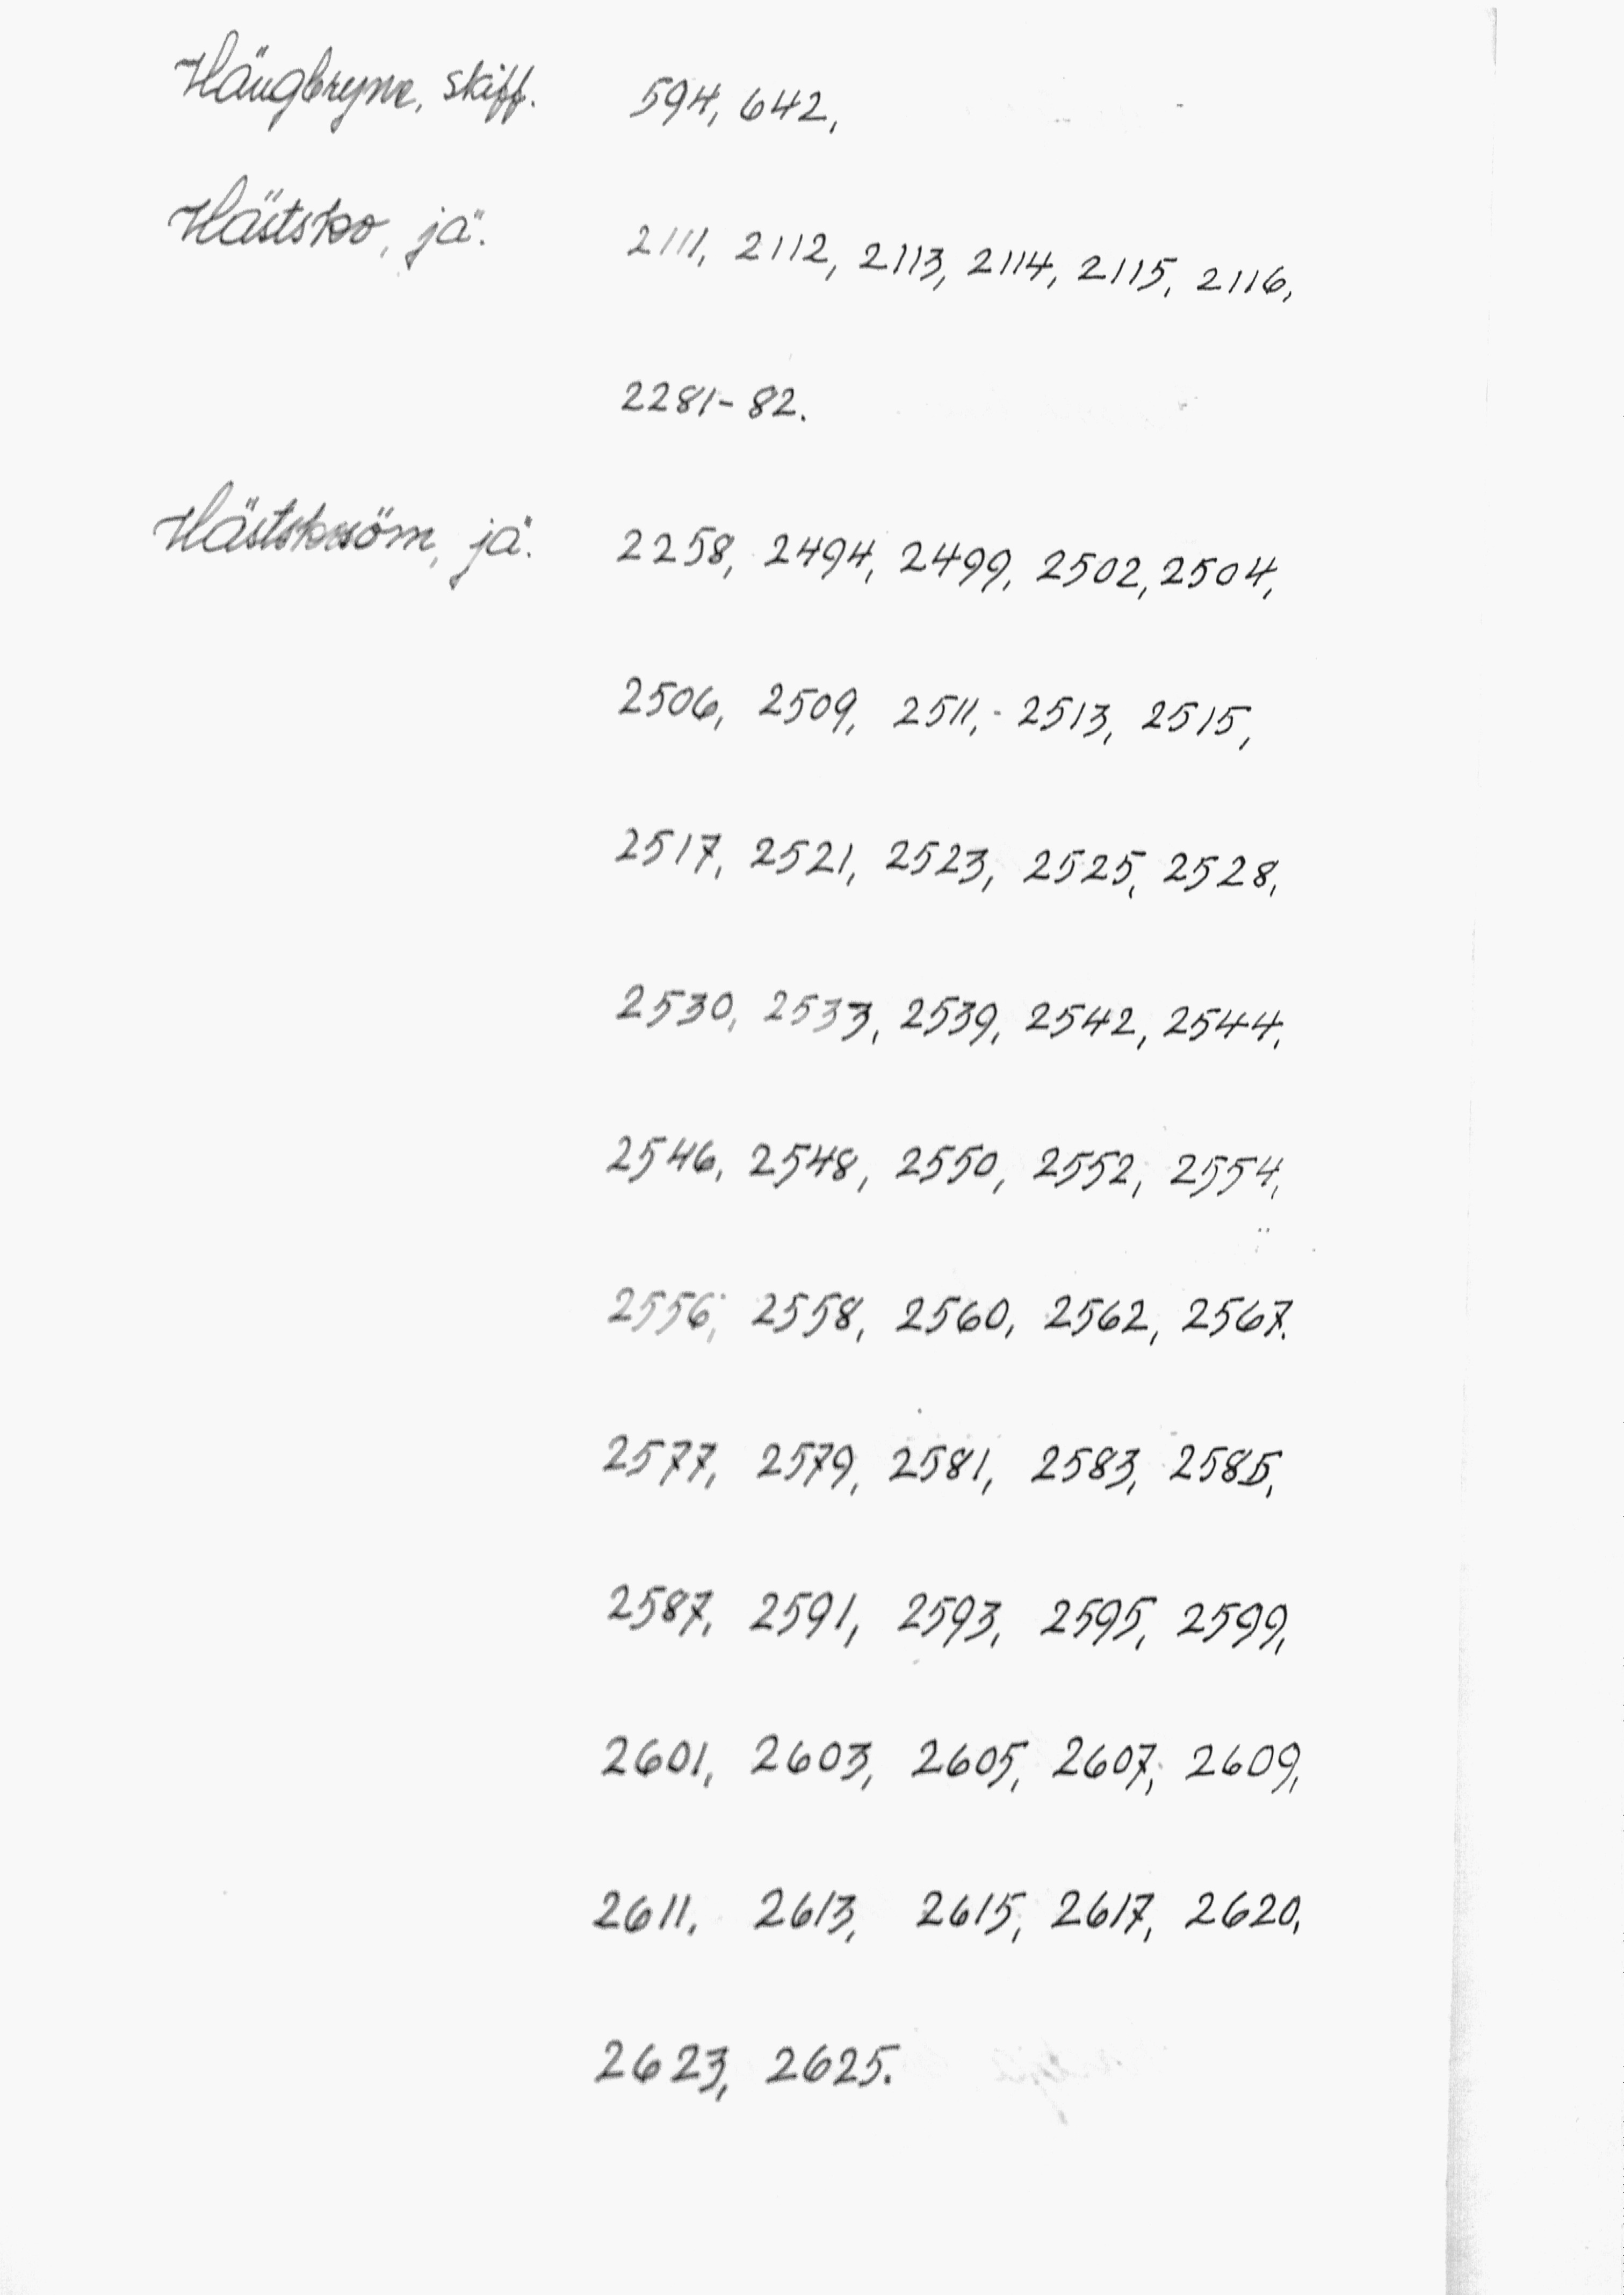 Hängbryne, skiff. 594, 642,
Hästsko, jä. 2111, 2112, 2113, 2114, 2115, 2116,
2281-82.
Hästskosöm, jä. 2258, 2494, 2499, 2502, 2504,
2506, 2509, 2511, - 2513, 2515,
2517, 2521, 2523, 2525, 2528,
2530, 2533, 2539, 2542, 2544,
2546, 2548, 2550, 2552, 2554,
2556, 2558, 2560, 2562, 2567.
2577, 2579, 2581, 2583, 2585,
2587, 2591, 2593, 2595, 2599,
2601, 2603, 2605, 2607, 2609,
2611, 2613, 2615, 2617, 2620,
2623, 2625.